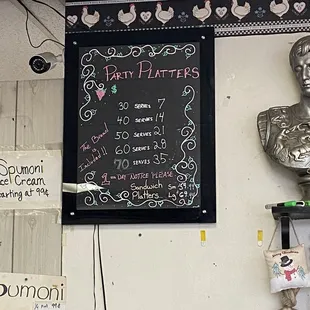 Party Platters
$
30 Serves 7
40 Serves 14
50 Serves 21
60 Serves 28
70 Serves 35
The Bread
is
Included!!
Day Notice Please
Sandwich Sm
Platters Lg
Spumoni
Ice Cream
Starting at 99¢
Spumoni